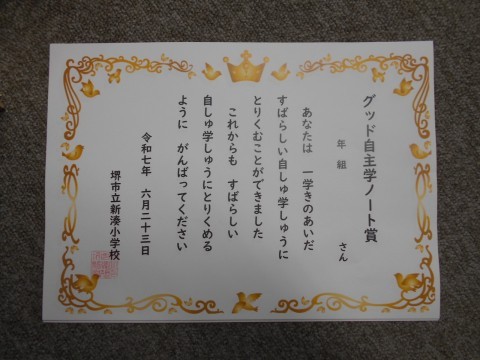 グッド自主学ノート賞
年　組
さん
あなたは　一学きのあいだ
すばらしい自しゅ学しゅうに
とりくむことができました
これからも　すばらしい
自しゅ学しゅうにとりくめる
ように　がんばってください
令和七年　六月二十三日
堺市立新湊小学校